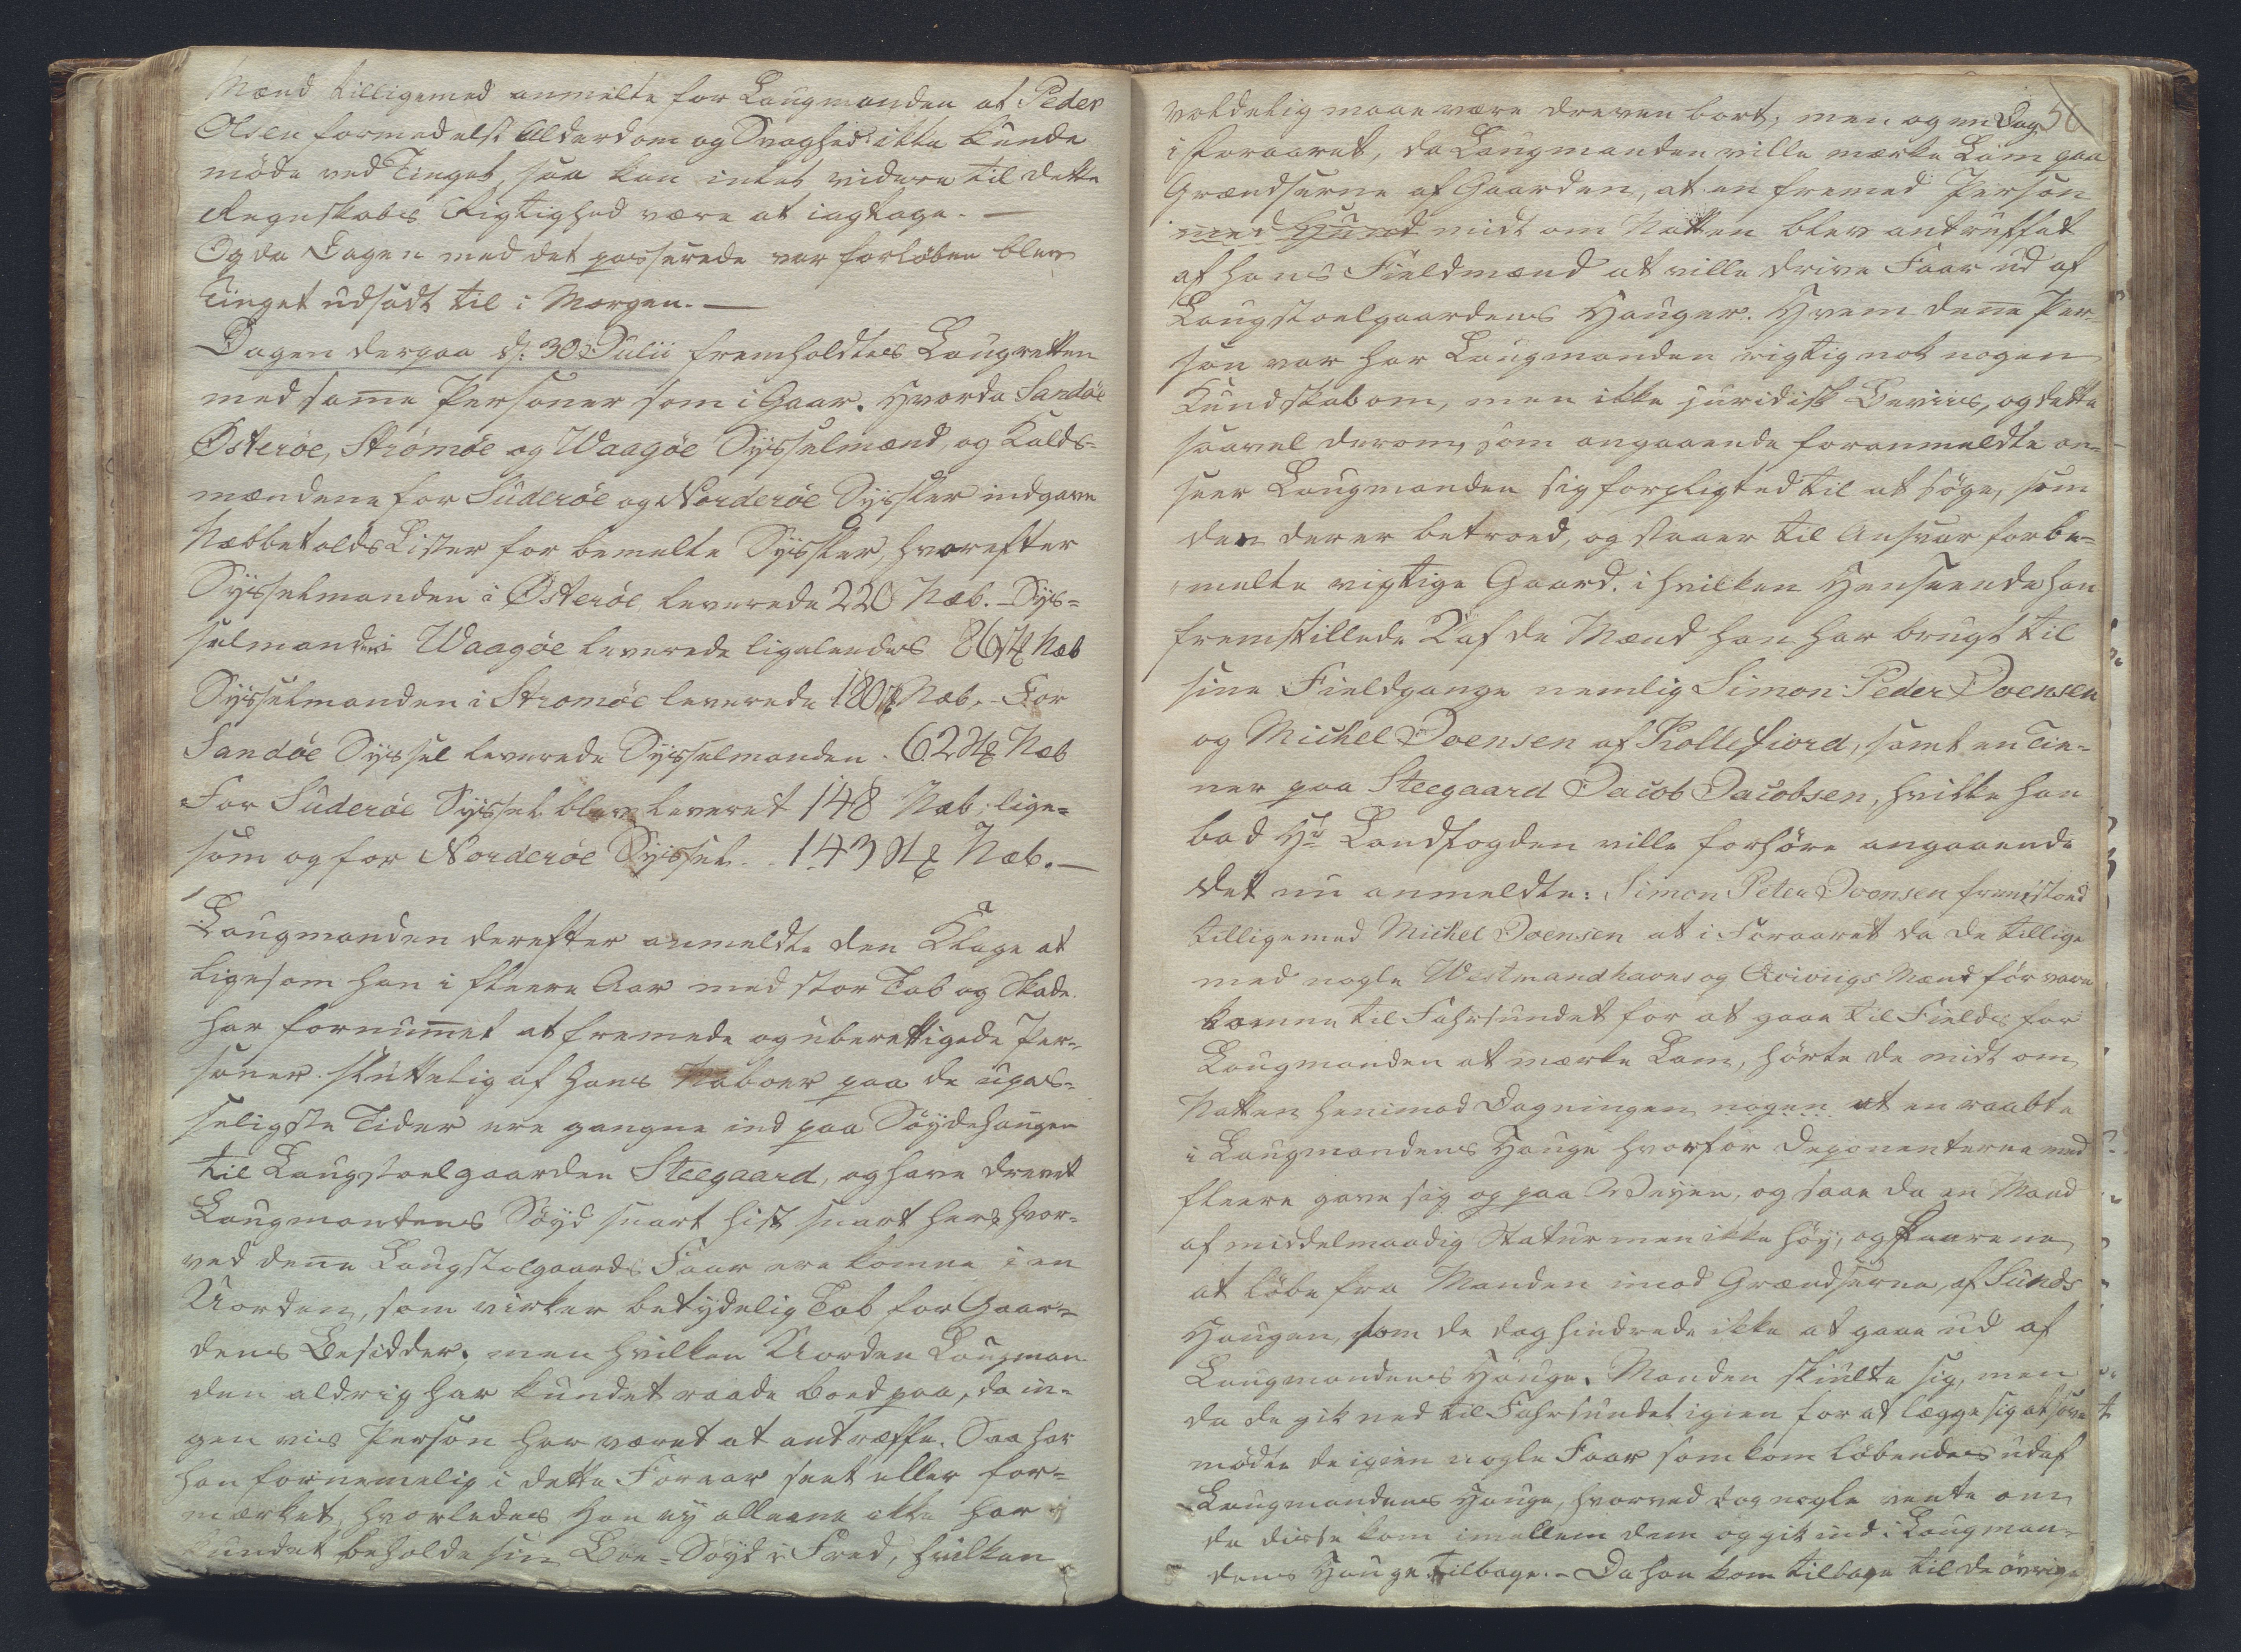 Mænd tilligemed anmelte for Laugmanden at Peder
Olsen formedelst Alderdom og Svaghed ikke kunde
möde ved Tinget, saa kan intet videre til dette
Regnskabs Rigtighed være at iagtage. —
Og da Dagen med det passerede var forløben blev
Tinget udsadt til i Morgen. —
Dagen derpaa d: 30 Julii fremholdtes Laugretten
med samme Personer som i Gaar. Hvorda Sandöe
Österöe, Strömöe og Waagöe Sysselmænd, og Kalds-
mændene for Suderöe og Norderöe Sysseler indgave
Næbbetolds Lister for bemelte Sysseler, hvorefter
Sysselmanden i Österöe leverede 220 Næb. - Sys-
selmanden i Waagöe leverede ligeledes 86 St Næb
Sysselmanden i Stromöe leverede 180 St Næb. - For
Sandöe Syssel leverede Sysselmanden . 62 St Næb
For Suderöe Syssel blev leveret 148 Næb, lige-
som og for Norderöe Syssel . . 143 St Næb. —
Laugmanden derefter anmeldte den Klage at
ligesom han i fleere Aar med stor Tab og Skade
har fornummet at fremede og uberettigede Per-
soner sluttelig af hans Naboer paa de upas-
seligste Tider ere gangne ind paa Söydehaugen
til Laugstoelgaarden Steegaard, og have drevet
Laugmandens Söyd snart hist snart her, hvor-
ved denne Laugstolgaards Faar ere komne i en
Uorden, som virker betydelig Tab for Gaar-
dens Besidder, men hvilken Uorden Laugman
den aldrig har kundet raade Boed paa, da in-
gen vis Person har været at antræffe. Saa har
han fornemmelig i dette Foraar seet eller for-
mærket, hvorledes Han ey alleene ikke har
kundet beholde sin Böe-Söyd i Fred, hvilken
56
voldelig maae være dreven bort; men og en Dag
i Foraaret, da Laugmanden ville mærke Lam paa
Grændserne af Gaarden, at en fremed Person
med Hund midt om Natten blev antruffet
af hans Fieldmænd at ville drive Faar ud af
Laugstoelgaardens Hauger. Hvem denne Per-
son var har Laugmanden rigtig nok nogen
Kundskab om, men ikke juridisk Beviis, og dette
saavel derom, som angaaende foranmeldte an-
seer Laugmanden sig forpligted til at söge, som
den der er betroed, og staaer til Ansvar for be-
melte vigtige Gaard. i hvilken Henseende han
fremstillede 2 af de Mænd han har brugt til
sine Fieldgange nemlig Simon Peder Joensen
og Michel Joensen af Kollefiord, samt en Tie-
ner paa Steegaard Jacob Jacobsen, hvilke han
bad Hr Landfogden ville forhöre angaaende
det nu anmeldte: Simon Peter Joensen fremstoed
tilligemed Michel Joensen at i Foraaret da de tillige
med nogle Westmandhavns og Qvivigs Mænd för vare
komne til Fahrsundet for at gaae til Fields for
Laugmanden at mærke Lam, hörte de midt om
Natten henimod Dagningen nogen at en raabte
i Laugmandens Hauge hvorfor Deponenterne med
fleere gave sig op paa Veyen, og saae da en Mand
af middelmaadig Statur men ikke höy, og Faarene
at löbe fra Manden imod Grændserne af Sunds
Haugen, som de dog hindrede ikke at gaae ud af
Laugmandens Hauge. Manden skiulte sig, men
da de gik ned til Fahrsundet igien for at lægge sig at sove
mödte de igien nogle Faar som kom löbendes ud af
Laugmandens Hauge, hvorved dog nogle vente om
da disse kom imellem dem og gik ind i Laugman-
dens Hauge tilbage. - Da han kom tilbage til de övrige